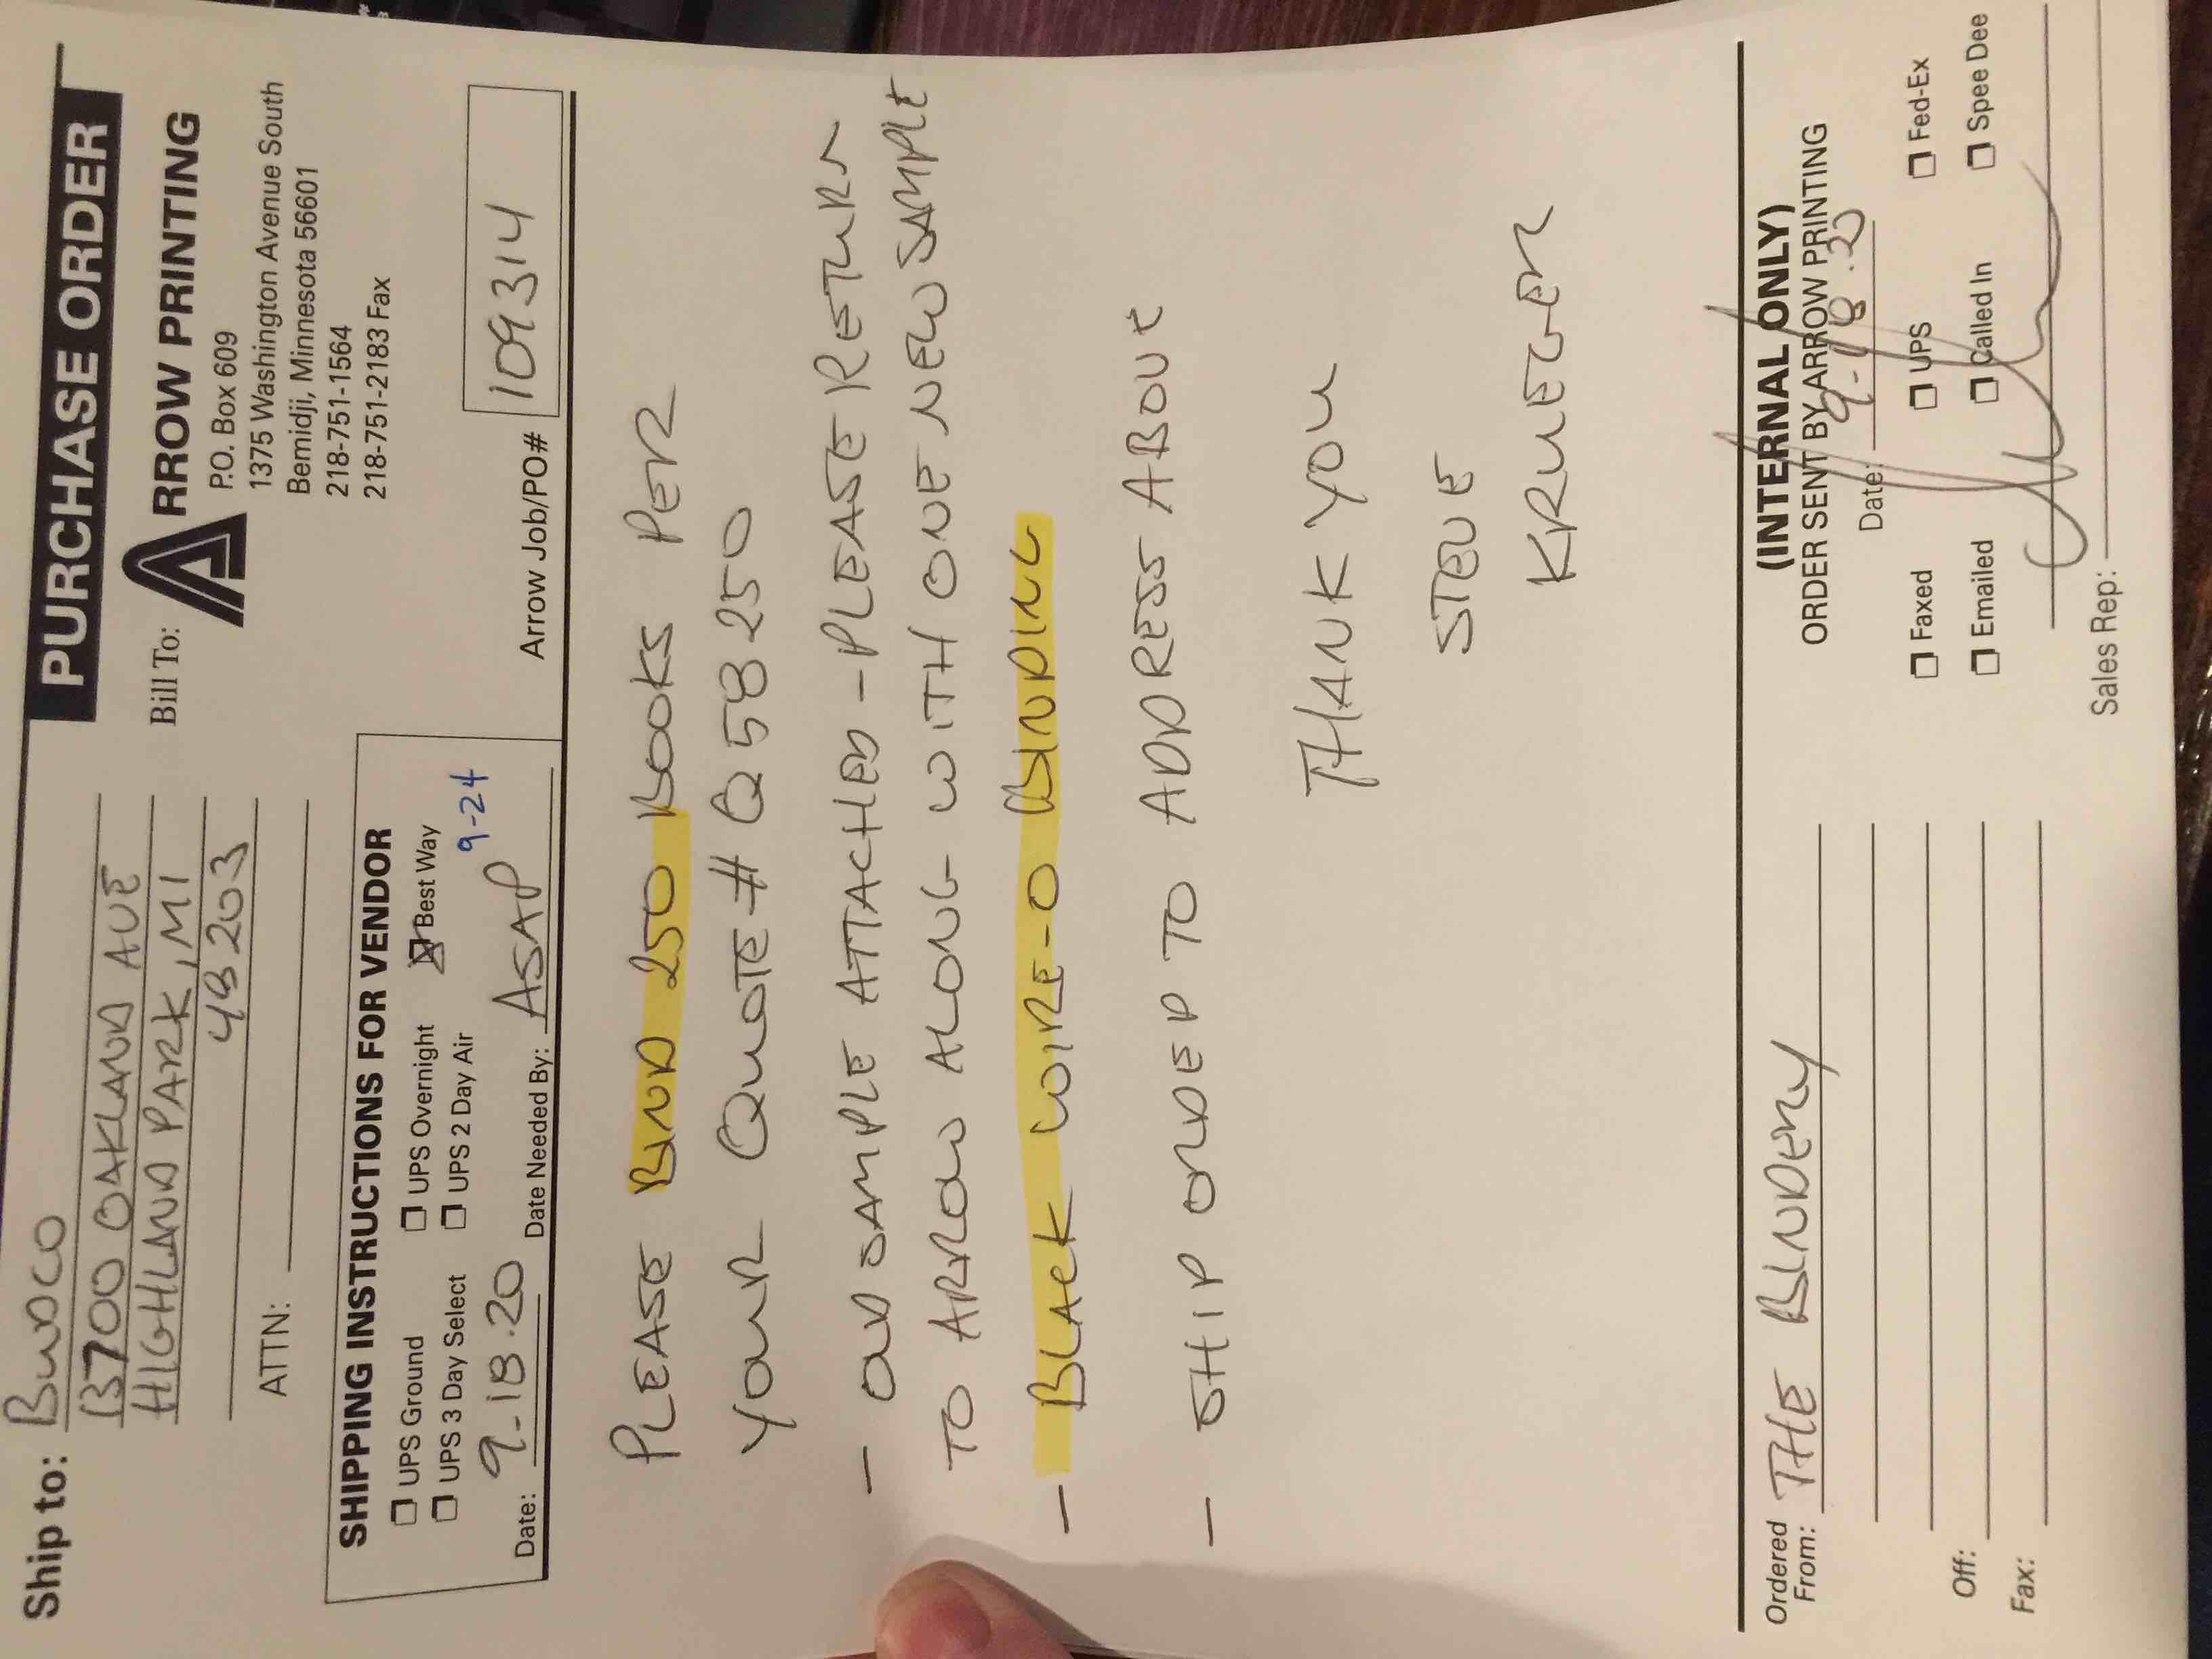 PURCHASE ORDER
Ship to: BUDCO
13700 OAKLAND AVE
HIGHLAND PARK, MI
48203
ATTN:
Bill To:
ARROW PRINTING
P.O. Box 609
1375 Washington Avenue South
Bemidji, Minnesota 56601
218-751-1564
218-751-2183 Fax
SHIPPING INSTRUCTIONS FOR VENDOR
UPS Ground UPS Overnight Best Way
UPS 3 Day Select UPS 2 Day Air 9-24
Date: 9-18-20 Date Needed By: ASAP
Arrow Job/PO# 109314
PLEASE BIND 250 BOOKS PER
YOUR QUOTE # Q58250
- OLD SAMPLE ATTACHED - PLEASE RETURN
TO ARROW ALONG WITH ONE NEW SAMPLE
- BLACK WIRE-O BINDING
- SHIP ORDER TO ADDRESS ABOVE
THANK YOU
STEVE
KRUEGER
Ordered
From: THE BINDERY
Off:
Fax:
(INTERNAL ONLY)
ORDER SENT BY ARROW PRINTING
Date: 9-18-20
Faxed UPS Fed-Ex
Emailed Called In Spee Dee
Sales Rep: